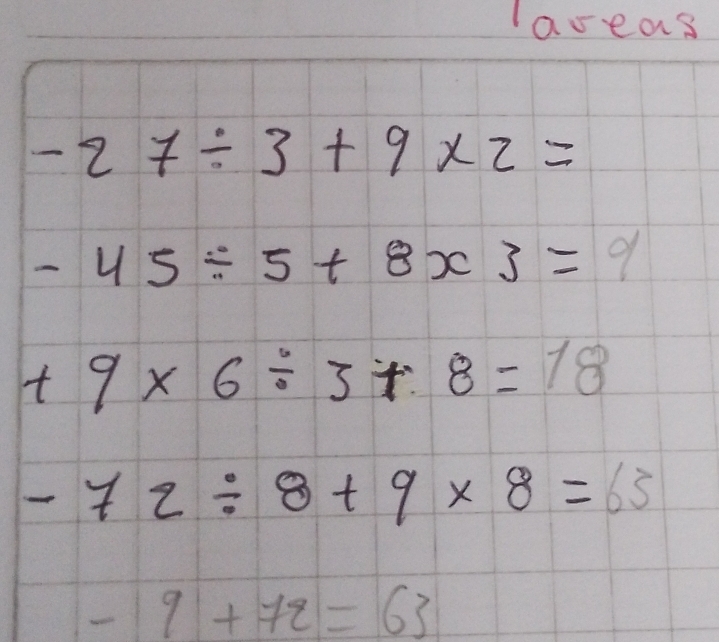 Tareas
-27÷3+9×2=
-45÷5+8×3=9
+9×6÷3+8=18
-72÷8+9×8=63
-9+72=63